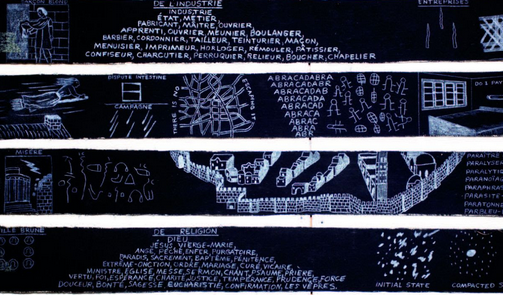 GARÇON BLOND
DE L'INDUSTRIE
INDUSTRIE
ÉTAT, MÉTIER,
FABRICANT, MAÎTRE, OUVRIER,
APPRENTI, OUVRIER, MEUNIER, BOULANGER,
BARBIER, CORDONNIER, TAILLEUR, TEINTURIER, MAÇON,
MENUISIER, IMPRIMEUR, HORLOGER, RÉMOULER, PÂTISSIER,
CONFISEUR, CHARCUTIER, PERRUQUIER, RELIEUR, BOUCHER, CHAPELIER
ENTREPRISES
DISPUTE INTESTINE
CAMPAGNE
THERE IS NO
ESCAPING IT
ABRACADABRA
ABRACADABR
ABRACADAB
ABRACADA
ABRACAD
ABRACA
ABRAC
ABRA
ABR
MISÈRE
PARAÎTRE
PARALYSER
PARALYTIQ
PARAPHRAS
PARASITE
PARATONNE
PARBLEU
LE BRUNE
DE RELIGION
DIEU
JÉSUS, VIERGE-MARIE,
ANGE, PÊCHÉ, ENFER, PURGATOIRE,
PARADIS, SACREMENT, BAPTÊME, PÉNITENCE,
EXTRÊME-ONCTION, ORDRE, MARIAGE, CURÉ, VICAIRE,
MINISTRE, ÉGLISE, MESSE, SERMON, CHANT, PSAUME, PRIÈRE,
VERTU, FOI, ESPÉRANCE, CHARITÉ, JUSTICE, TEMPÉRANCE, PRUDENCE, FORCE
DOUCEUR, BONTÉ, SAGESSE, EUCHARISTIE, CONFIRMATION, LES VÊPRES.
INITIAL STATE
COMPACTED S